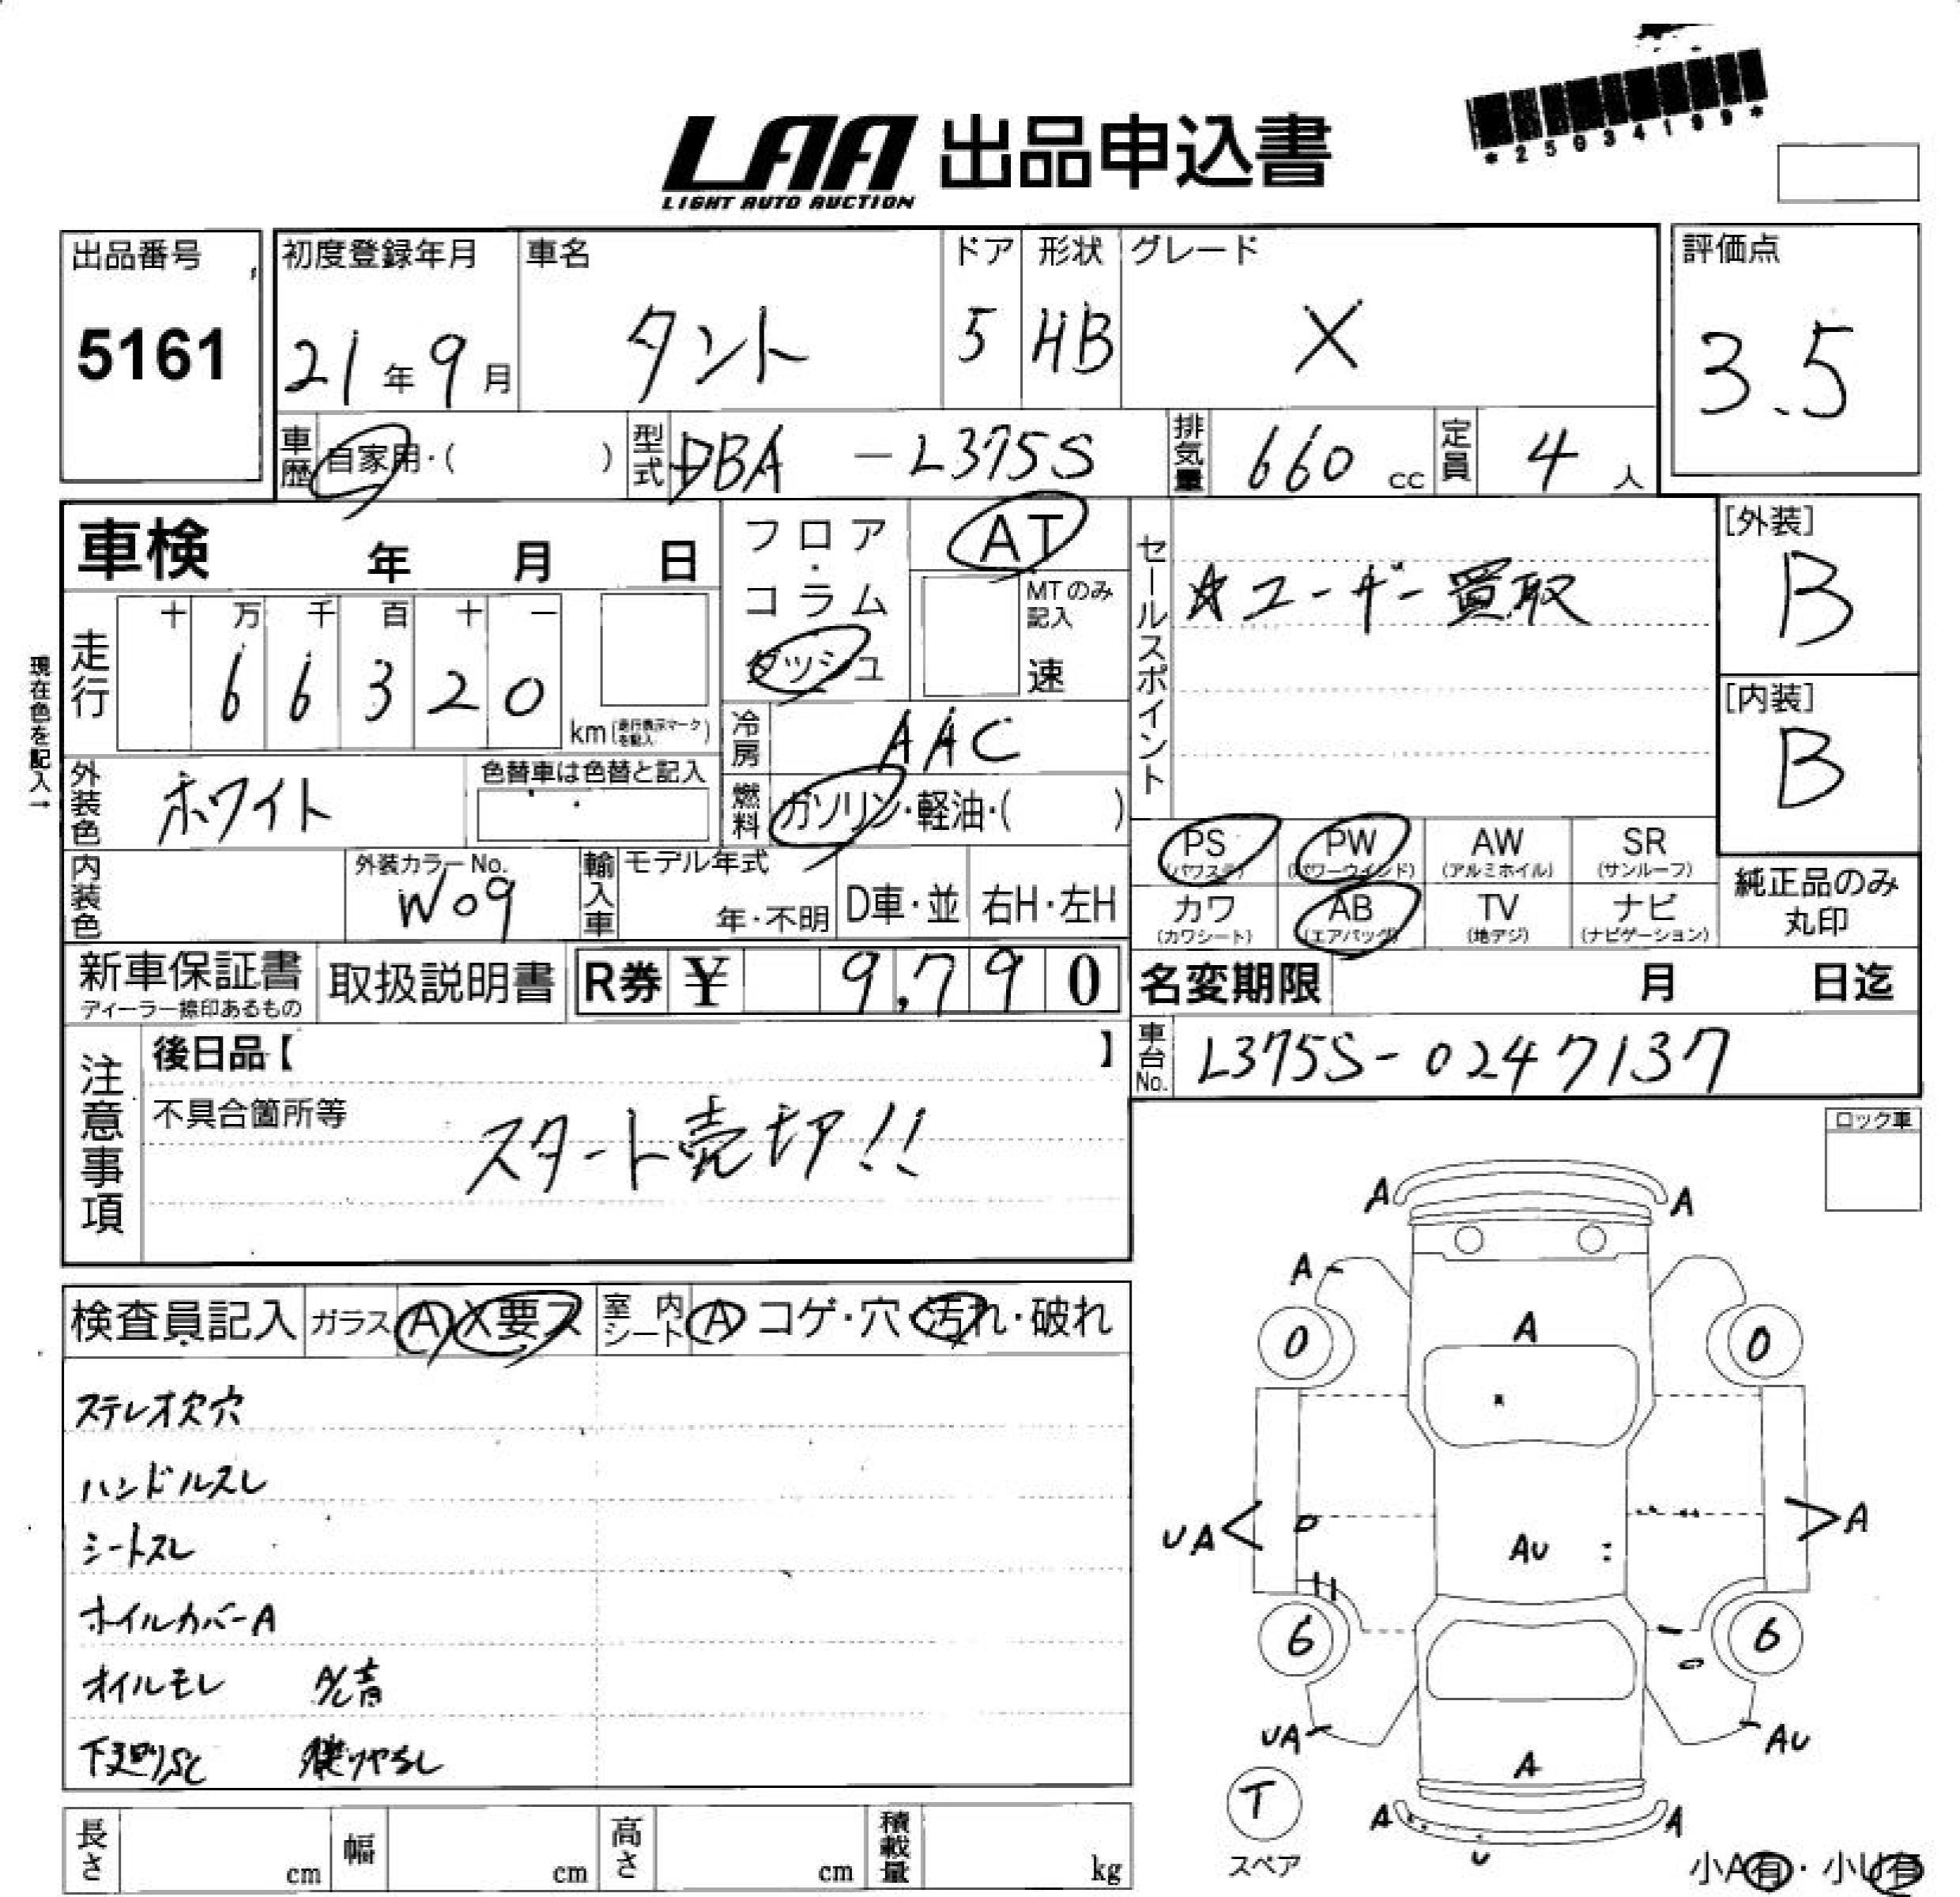 *25034199*
LAA 出品申込書
LIGHT AUTO AUCTION
出品番号
5161
初度登録年月
21年9月
車名
タント
ドア
5
形状
HB
グレード
X
評価点
3.5
車歴
自家用・( )
型式
DBA-L375S
排気量
660 cc
定員
4 人
車検 年 月 日
フロア・コラム
ダッシュ
AT
MTのみ記入
速
セールスポイント
☆ユーザー買取
[外装]
B
[内装]
B
現在色を記入→
走行
十 万 千 百 十 一
6 6 3 2 0
km(走行表示マークを記入)
冷房
AAC
外装色
ホワイト
色替車は色替と記入
燃料
ガソリン・軽油・( )
内装色
外装カラーNo.
W09
輸入車
モデル年式
年・不明
D車・並
右H・左H
PS (パワステ)
PW (パワーウインド)
AW (アルミホイル)
SR (サンルーフ)
カワ (カワシート)
AB (エアバッグ)
TV (地デジ)
ナビ (ナビゲーション)
純正品のみ丸印
新車保証書
ディーラー捺印あるもの
取扱説明書
R券 ¥ 9,790
名変期限 月 日迄
車台No.
L375S-0247137
注意事項
後日品【 】
不具合箇所等
スタート売切!!
ロック車
検査員記入
ガラス A X 要ス
室内シート A コゲ・穴・汚れ・破れ
ステレオ欠穴
ハンドルスレ
シートスレ
ホイルカバーA
オイルモレ
下廻りS
A A
A
0 A 0
UA AU A
6 6
UA AU
A
T
スペア
A A
U
小A有・小U有
長さ cm
幅 cm
高さ cm
積載量 kg